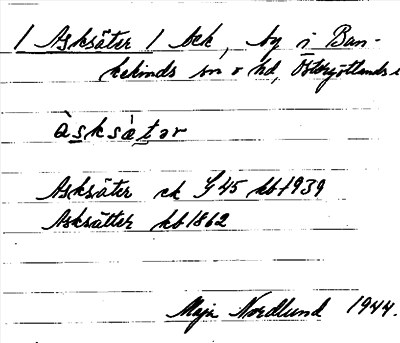 / Asksäter / bek, by i Ban-
kekinds sn o hd, Östergötlands
àsksàtər
Asksäter ek G 45 kb 1939
Asksätter kb 1862
Maja Nordlund 1944.